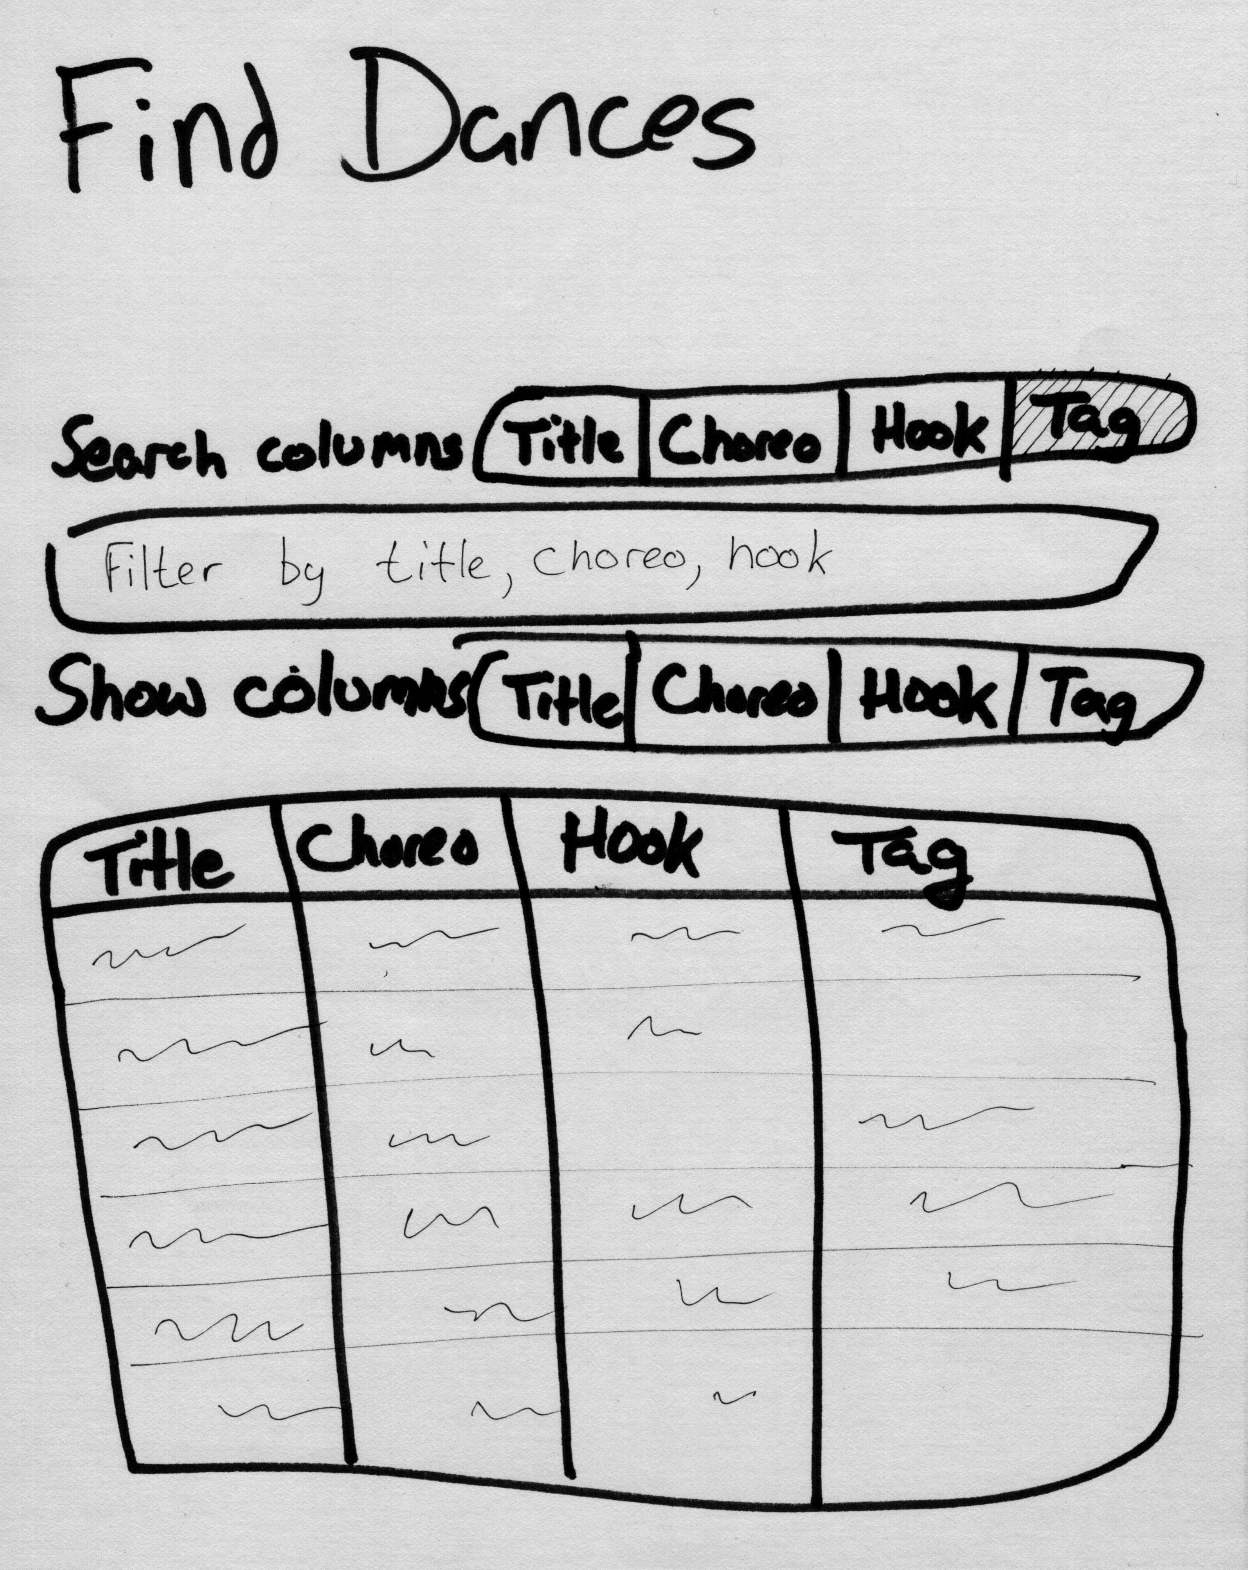 Find Dances
Search columns Title Choreo Hook Tag
Filter by title, choreo, hook
Show columns Title Choreo Hook Tag
Title Choreo Hook Tag